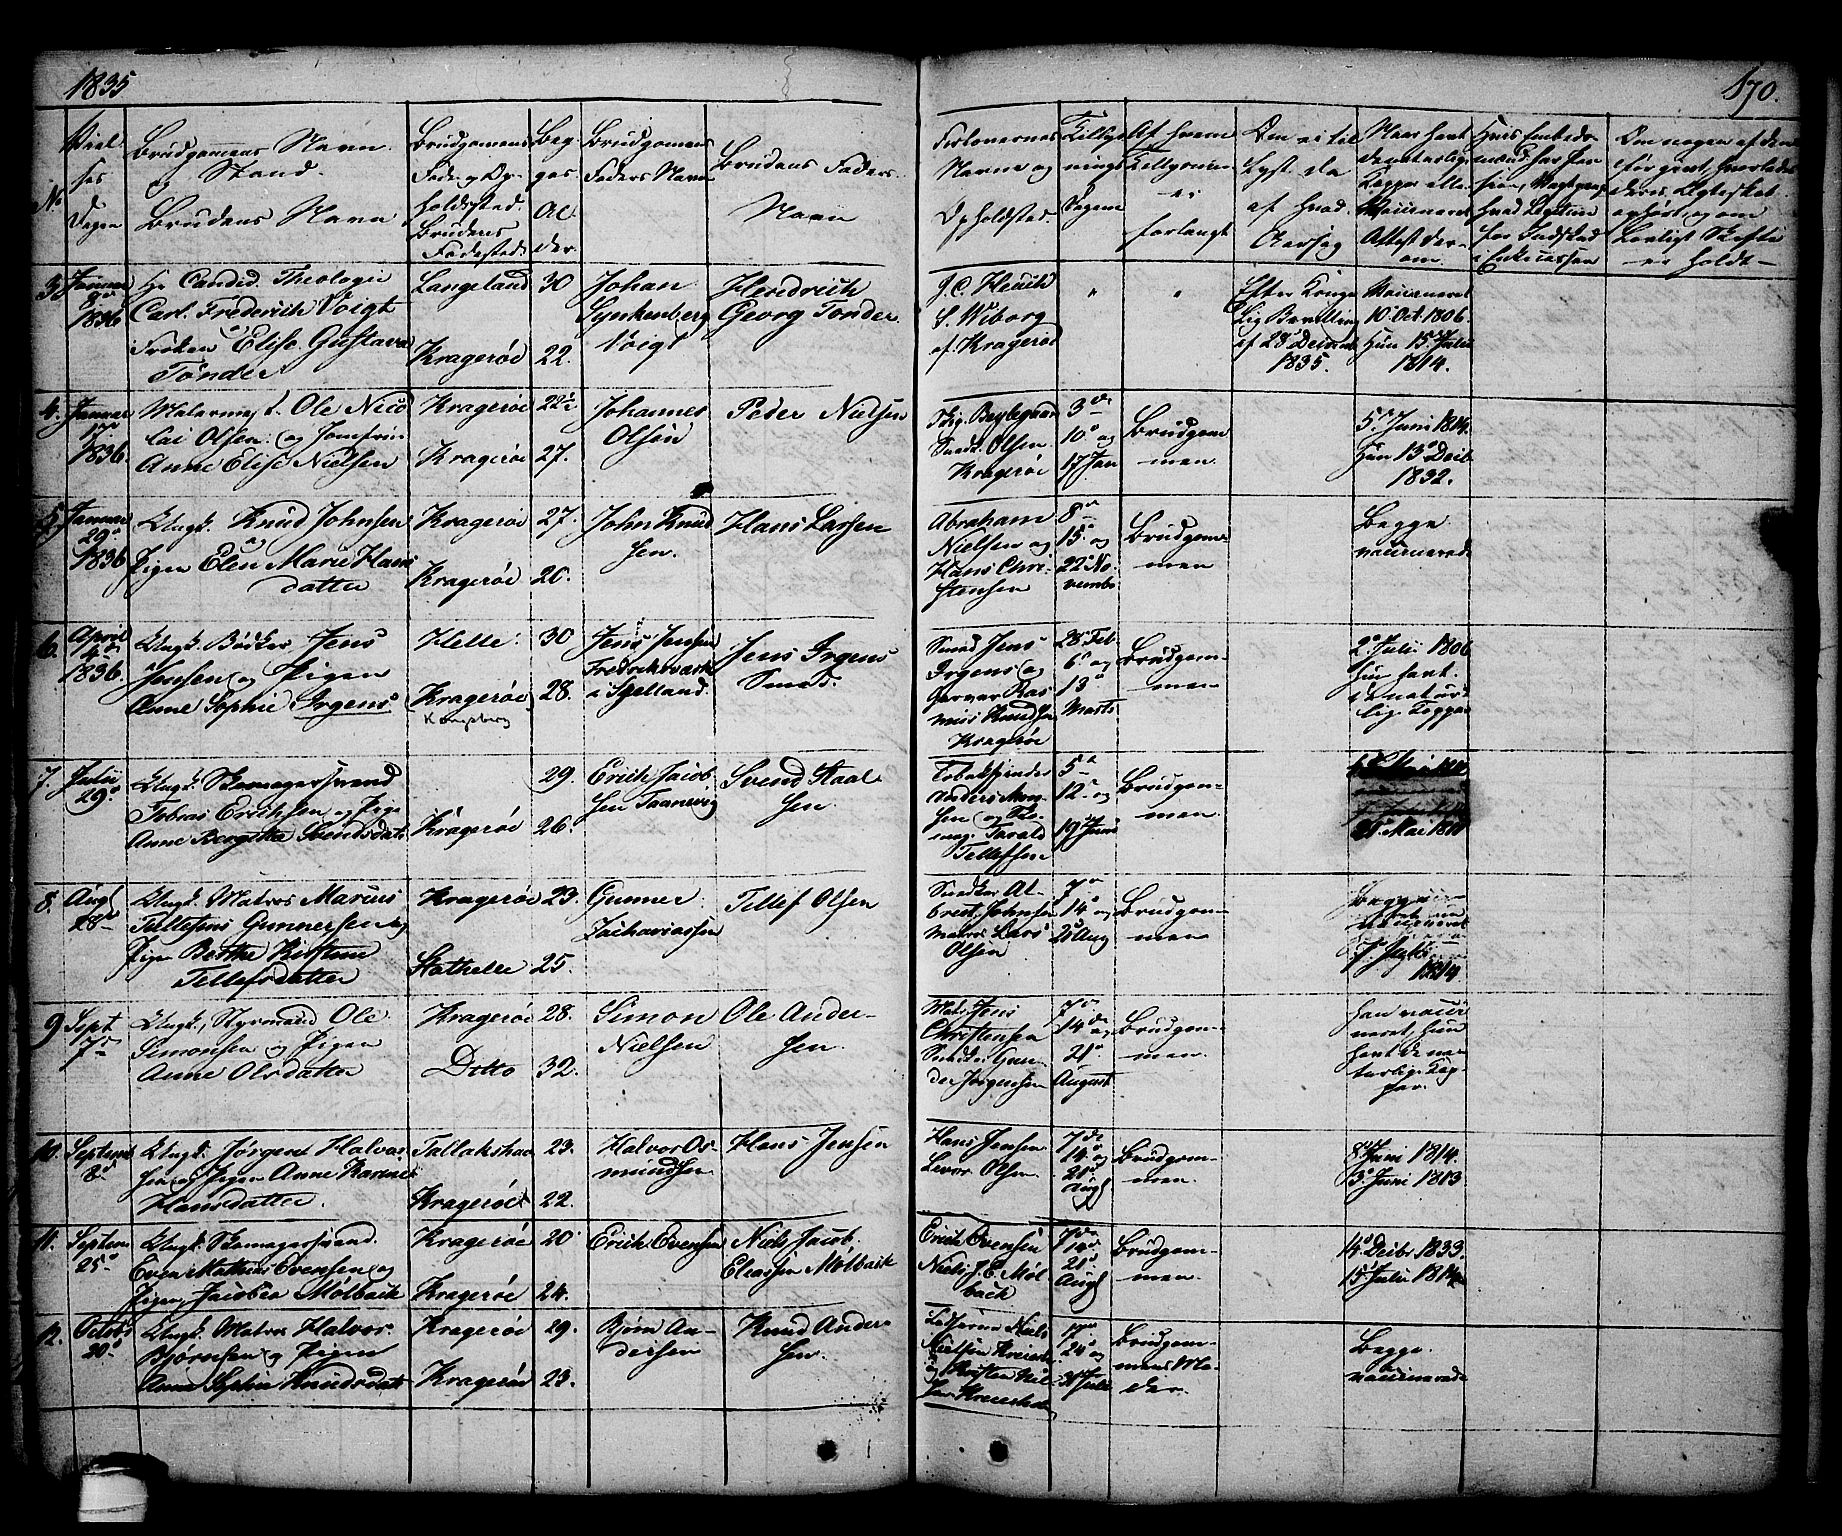 1835
170.
No
Viel-
ses
Dagen
Brudgomens Navn
og Stand.
Brudens Navn
Brudgomens
Føde og Op-
holdssted.
Brudens
Fødested.
Beg-
ges
Al-
der.
Brudgomens
Faders Navn
Brudens Faders
Navn
Forlovernes
Navne og
Opholdsted
Tillys-
nings
Dagene
Af hvem
Tillysningen
er
forlangt
Om ei til
lyst da
af hvad
Aarsag
Naar havt
de naturlige
Kopper eller
Vaccineret
Attest der-
om.
Om nogen af dem
før gevt, hvorledes
deres Ægteskab
ophørt, og om
Lovligt Skifte
er holdt
3.
Januar
8de
1836
Hr Candid. Theologie
Carl Frederich Voigt
og
Frøken Elise Gustava
Tönder
Langeland
Kragerøe
30
22.
Johan
Lynkenberg
Voigt
Hendrich
Georg Tonder.
J. C. Heuch
S. Wiborg
af Kragerøe
"
"
Efter Konge
lig Bevilling
af 28 Decembr
1835.
Vaccineret
10 Oct. 1806.
Hun 15 Julii
1814.
4.
Januar
17de
1836.
Malermest. Ole Nico
lai Olsen og Jomfrue
Anne Elise Nielsen
Kragerøe
Kragerøe
22½
27.
Johannes
Olsen
Peder Nielsen
Snedk. Olsen
Kragerøe
3de
10de og
17 Jan
Brudgom
men.
5. Juni 1814.
Hun 13de Decbr
1832.
5.
Januar
29de
1836
Ungk. Knud Johnsen
og
Pigen Elen Marie Hans
datter
Kragerøe
Kragerøe
27.
20.
John Knud
sen.
Hans Larsen
Abraham
Nielsen og
Hans Chri-
stensen
8de
15. og
22 No-
vembr
Brudgom-
men
Begge
vaccinerede
6.
April
4de
1836.
Ungk. Bødker Jens
Jensen og Pigen
Anne Sophie Irgens
Helle.
Kragerøe
Kongsberg
30
28.
Jens Jensen
Fredrichsværk
i Sjelland.
Jens Irgens
Smed.
Smed Jens
Irgens og
Garver Ras
mus Knudsen
Kragerøe
28 Feb.
6de og
13de
Marts
Brudgom-
men
2de Julii 1806
hun havt
de natur-
lige Kopper
7.
Julii
29de
Ungk. Skomagersvend
Tobias Erichsen og Pige
Anne Bergitta Svendsdatt
Kragerøe
29.
26.
Erich Jacob
sen Taanevig
Svend Staal
sen.
Tobakspinder
Anders Mon-
sen og
Tarald
Tellefsen
5te
12te og
19de Juni
Brudgom-
men.
8.
Augt
28de
Ungk. Matros Marcus
Tellefsen Gunnersen og
Pigen Berthe Kirstine
Tellefsdatter
Kragerøe
Stathelle
23.
25.
Gunner
Zachariassen
Tellef Olsen
Snedker Al-
bret Johnsen
Matros Lars
Olsen
7de
14de og
Brudgom-
men.
Begge
1814.
9.
Sept
7de
Ungk. Styrmand Ole
Simonsen og Pigen
Anne Olsdatter
Kragerøe
Ditto
28.
32.
Simon
Nielsen
Ole Ander-
sen.
Matr Jens
Christensen
Snedker Gun-
der Jørgensen
7de
14de og
21de
August
Brudgom-
men.
han vacci-
neret, hun
havt de na-
turlige Kop-
per.
10.
Septem
8de
Ungk. Jørgen Halvor
sen og Pigen Anne Karine
Hansdatter.
Tallakshav
Kragerøe
23.
22.
Halvor Os-
mundsen
Hans Jensen
Hans Jensen
Levor Olsen
7de
14de og
21de
Augt
Brudgom-
men.
8de Juni 1814.
3de Juni 1813.
11.
Septem
25de
Ungk. Skomagersvend.
Even Mathias Evensen og
Pigen Jacobea Molbach
Kragerøe
Kragerøe
20
24.
Erich Evensen
Niels Jacob
Eliassen Molbach
Erich Evensen
Niels J. E. Mol-
bach
7de
14de
21de
Augt
Brudgom-
men.
14de Decbr 1833.
15 Julii 1814
12.
Octobr
20de
Ungk. Matros Halvor
Bjørnsen og Pigen
Anne Sophie Knudsdatt
Kragerøe
Kragerøe
29.
23.
Bjørn An-
dersen
Knud Ander
sen.
Niels
Nielsen
og
7de
24de og
31 Julii
Brudgom-
mens Mo-
der.
Begge
vaccinerede